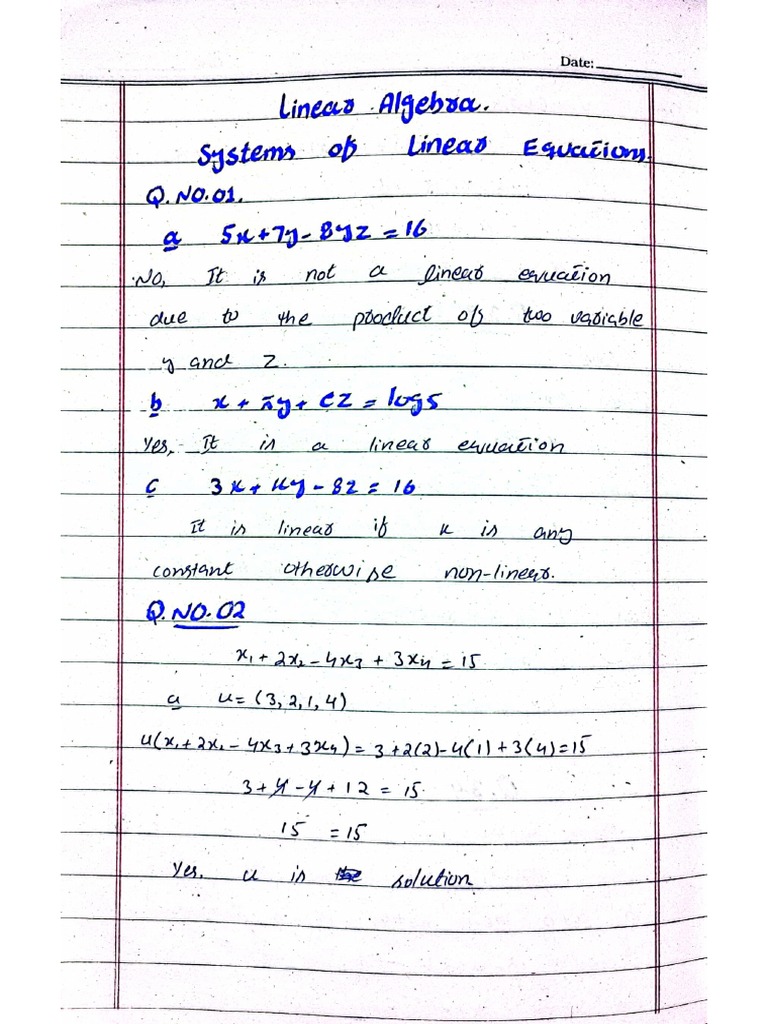 Date:
Linear Algebra.
Systems of Linear Equations.
Q.NO.01.
a 5x+7y-8yz=16
No, It is not a linear equation
due to the product of two variable
y and z.
b x+πy+ez=log5
Yes, It is a linear equation
c 3x+ky-8z=16
It is linear if k is any
constant otherwise non-linear.
Q.NO.02
x₁+2x₂-4x₃+3x₄=15
a u=(3,2,1,4)
u(x₁+2x₂-4x₃+3x₄)=3+2(2)-4(1)+3(4)=15
3+4-4+12=15
15 =15
Yes, u is solution